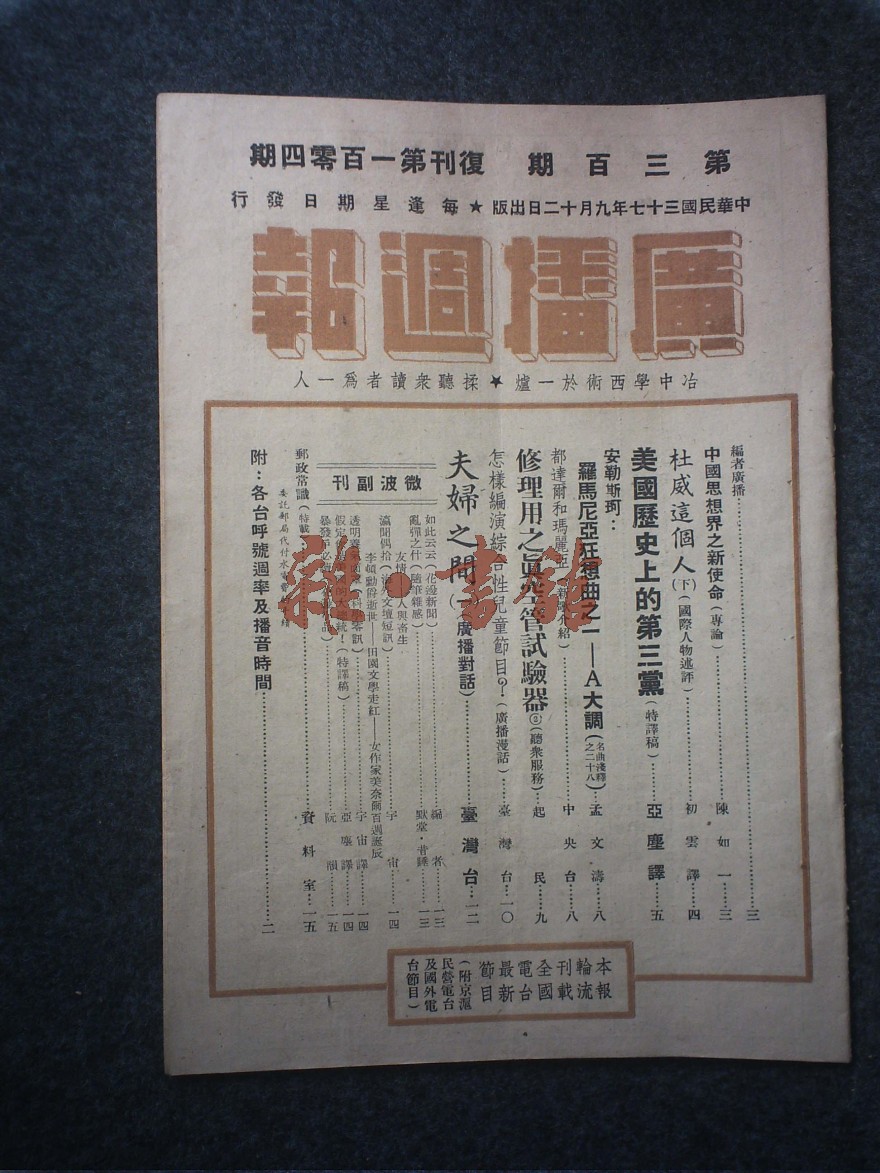 第三百期　復刊第一百零四期
中華民國三十七年九月十二日出版★每逢星期日發行
廣播週報
冶中學西術於一爐★揉聽衆讀者爲一人
編者廣播……三
中國思想界之新使命（專論）……陳如一…三
杜威這個人（下）（國際人物述評）……初雲譯…四
美國歷史上的第三黨（特譯稿）……亞塵譯…五
安勒斯珂：
羅馬尼亞狂想曲之一——A大調（名曲淺釋之二十八）…孟文濤…八
都達爾和瑪麗亞……中央台…八
修理用之眞空管試驗器（聽衆服務）…起民…九
怎樣編演綜合性兒童節目？（廣播漫話）…臺灣台…一〇
夫婦之間（廣播對話）……臺灣台…一二
微波副刊
如此云云（花邊新聞）……編者…一三
亂彈之什（隨筆雜感）……默堂·昔
友情 人與畜生
瀛聞偶拾 文壇短訊）……宇宙…一四
李頓勳爵逝世——田園文學走紅——女作家美奈爾百週誕辰
透明 ……宇宙譯…一四
假定 大總統！（特譯稿）……亞塵譯…一四
暴發戶必 ……阮 …一五
郵政常識（特載）……資料室…一五
委託郵局代付水電費
附：各台呼號週率及播音時間……二
本報輪流刊載全國電台最新節目
（附京滬民營電台及國外電台節目）
新·書鈢